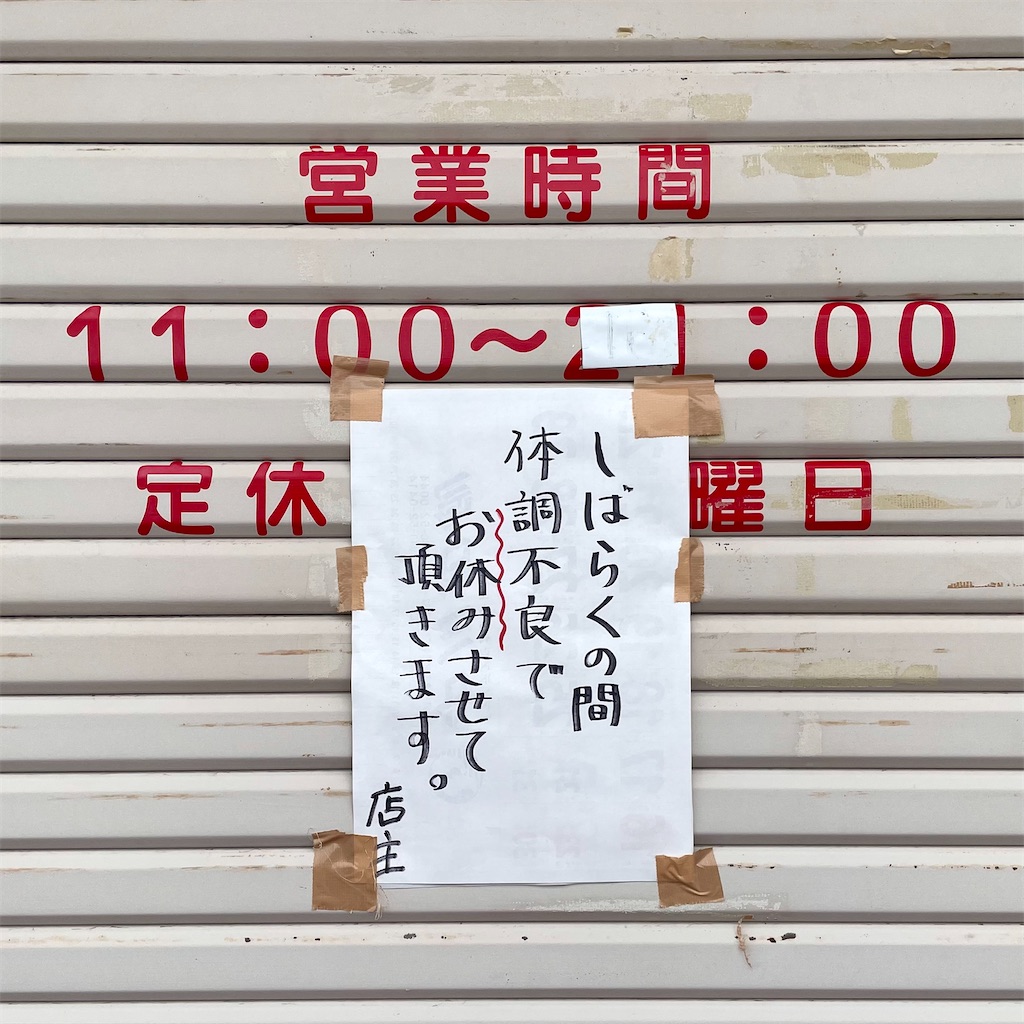 営業時間
11:00～2 :00
定休 曜日
しばらくの間
体調不良で
お休みさせて
頂きます。
店主